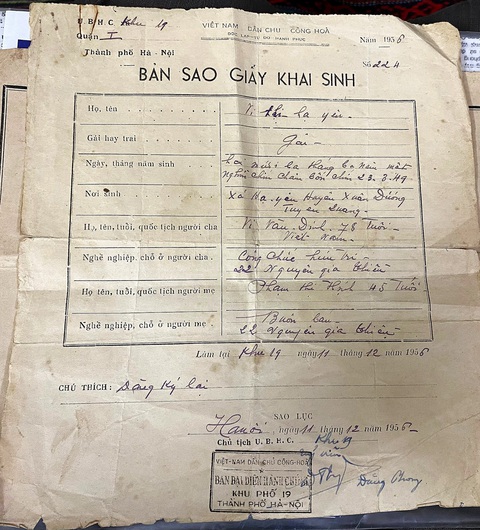 U.B.H.C Khu 19
Quận I
Thành phố Hà-Nội
VIỆT NAM DÂN CHỦ CỘNG HOÀ
ĐỘC LẬP - TỰ DO - HẠNH PHÚC
Năm 1956
Số 224
BẢN SAO GIẤY KHAI SINH
Họ, tên Vi thị hạ yên
Gái hay trai Gái
Ngày, tháng năm sinh Hai mươi ba tháng ba năm một
nghìn chín trăm bốn chín 23-3-49
Nơi sinh Xã Hạ-yên Huyện Xuân Dương
Tuyên Quang
Họ, tên, tuổi, quốc tịch người cha Vi Văn Định 78 tuổi
Việt Nam
Nghề nghiệp, chỗ ở người cha Công chức hưu trí
22 Nguyễn gia thiều
Họ tên, tuổi, quốc tịch người mẹ Phạm thị 45 tuổi
Buôn bán
Nghề nghiệp, chỗ ở người mẹ 22 Nguyễn gia thiều
Làm tại Khu 19 ngày 11 tháng 12 năm 1956
CHÚ THÍCH: Đăng ký lại
SAO LỤC
Hanoi, ngày 11 tháng 12 năm 1956
Chủ tịch U.B.H.C. Khu 19
VIỆT-NAM DÂN CHỦ CỘNG-HOÀ
BAN ĐẠI DIỆN HÀNH CHÍNH
KHU PHỐ 19
THÀNH PHỐ HÀ-NỘI
Đặng Phong